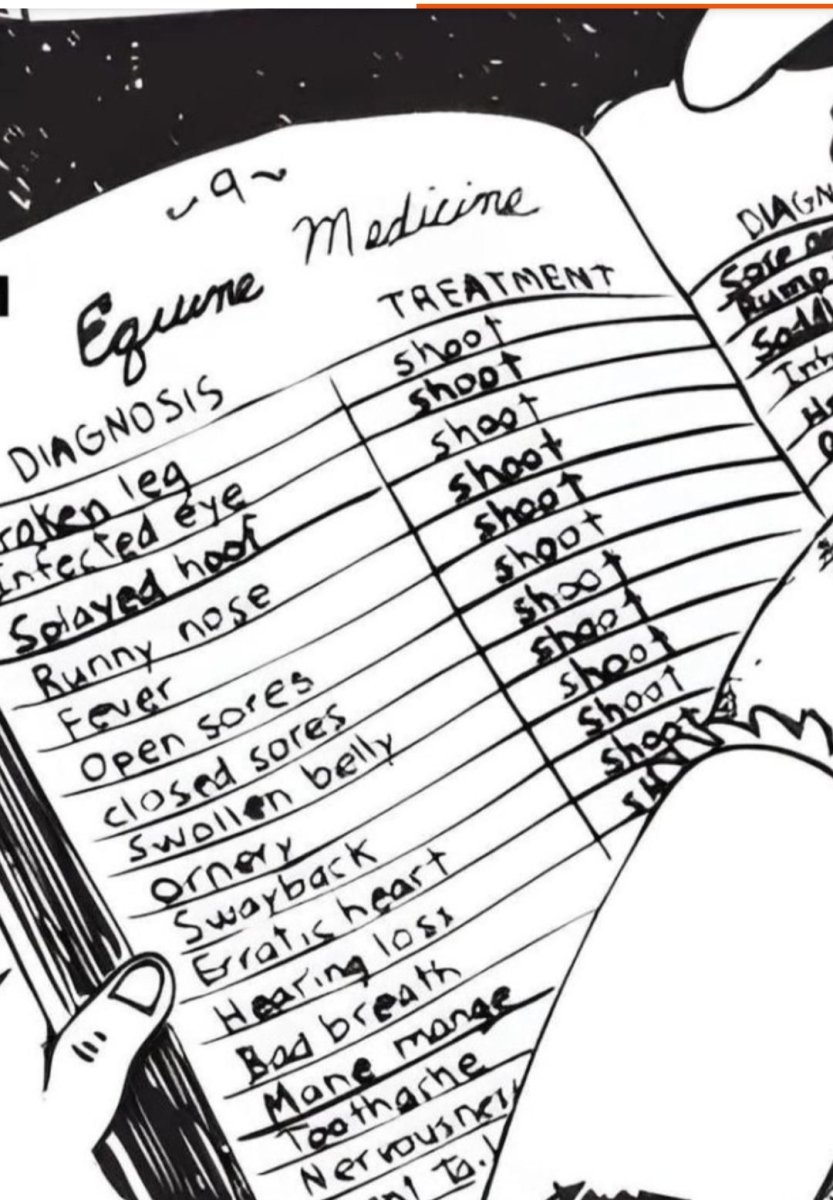 9
Equine Medicine
DIAGNOSIS TREATMENT
roken leg shoot
Infected eye shoot
Splayed hoof shoot
Runny nose shoot
Fever shoot
Open sores shoot
closed sores shoot
Swollen belly shoot
Ornery shoot
Swayback shoot
Erratic heart shoot
Hearing loss sh
Bad breath
Mane mange
Toothache
Nervousness
DIAGN
Sore
Rump
Saddl